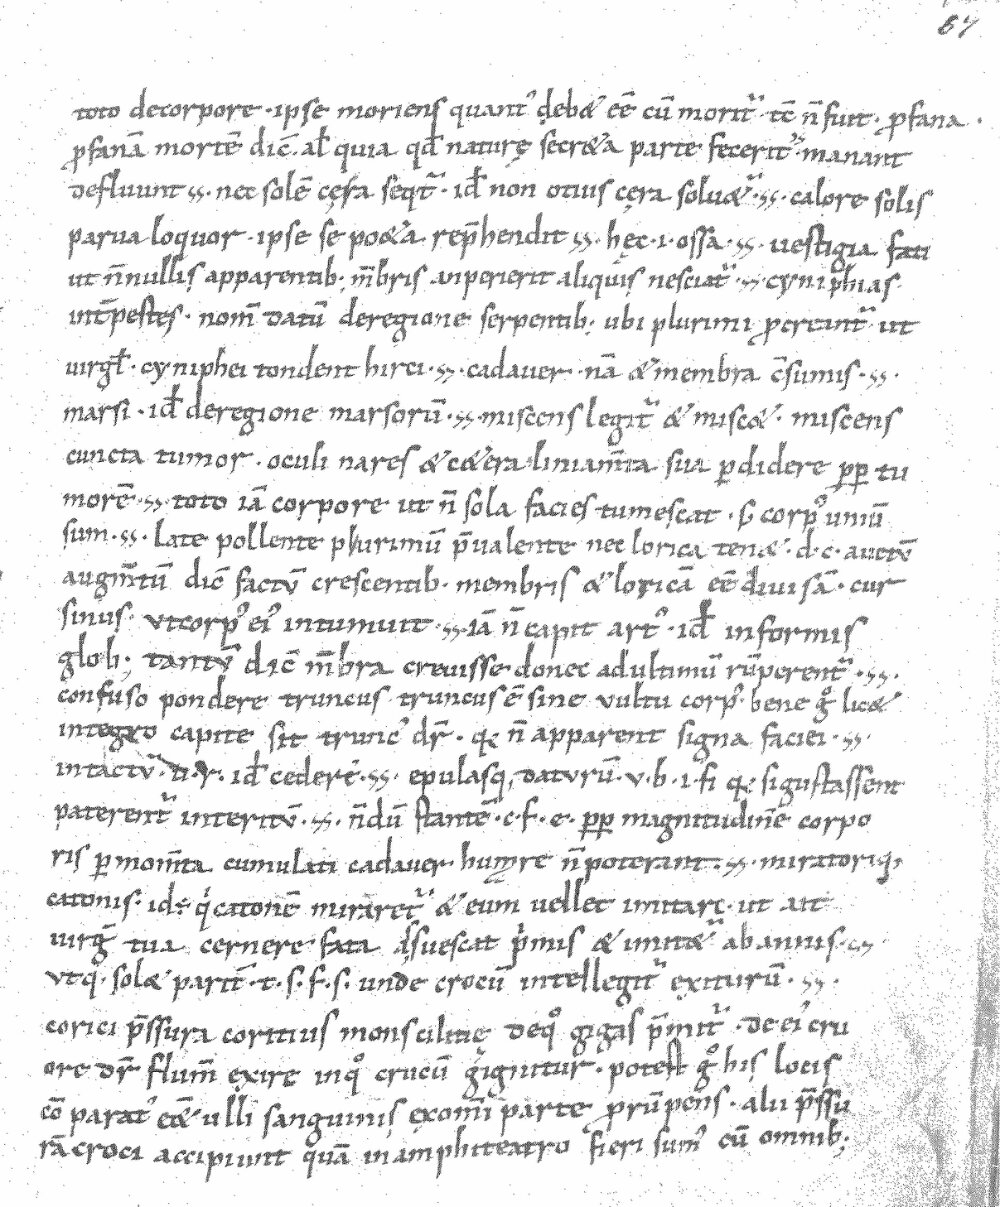 67
toto decorpore · ipse moriens quant᾽ debꝫ eē cū morit᷑ · tc̄ n̄ fuit · ꝓfana ·
ꝓfanā mortē dic̄ · al̄ quia qđ naturę secr&a parte fecerit᷑ · manant
defluunt ·;· nec solē cęra seqt᷑ · iđ non otius cęra solu&᷑ ·;· calore solis
parua loquor · ipse se po&a rep̄hendit ·;· hęc · i · ossa ·;· uestigia fati
ut n̄nullis apparentib; m̄bris an perierit aliquis nesciat᷑ ·;· cyniphias
int̄pestes · nom̄ datū deregione serpentib; ubi plurimi ꝓcreant᷑ ut
uirgł · cyniphei tondent hirci ·;· cadauer · nā & membra c̄sumis ·;·
marsi · iđ deregione marsorū ·;· miscens legit᷑ & misc& · miscens
cuncta tumor · oculi nares & c&era liniam̄ta sua ꝑdidere ꝓp tu
morē ·;· toto iā corpore ut n̄ sola facies tumescat · s; corp᾽ uniū
sum ·;· Late pollente plurimū p̄ualente nec lorica ten& · d · c · auctū
augm̄tū dic̄ factū crescentib · membris & loricā eē diuisā · cur
sinus · ut corp᾽ ei᾽ intumuit ·;· iā n̄ capit art᾽ · iđ informis
glob; tantū dic̄ m̄bra creuisse donec adultimū rūperent᷑ ·;·
confuso pondere truncus truncus ē sine uultu corp᾽ bene gº lic&
integro capite sit trunc᾽ dr̄ · q; n̄ apparent signa faciei ·;·
intactū · n · r · iđ cederē ·;· epulasq; daturū · v · b · i · fi q; si gustassent
paterent᷑ interitū ·;· n̄dū stantē · c · f · e · ꝓp magnitudinē corpo
ris ꝑ mom̄ta cumulati cadauer humare n̄ poterant ·;· miratoriq;
catonis · id; q' catonē miraret᷑ & eum uellet imitari · ut ait
uirgł tua cernere fata assuescat p'mis & imit&᷑ abannis ·;·
utq · sol& parit᷑ · t · s · f · s · unde crocū intellegit᷑ exiturū ·;·
corici p̄ssura coritius mons cilitię deqº gigas p̄mit᷑ · de ei᾽ cru
ore dr̄ flum̄ exire inqº crucū gignitur · potest gº his locis
cō parat᾽ eē & ulli sanguinis exom̄i parte prūpens · alii p̄ssu
rā croci accipiunt quā inamphiteatro fieri sum᾽ cū omnib;